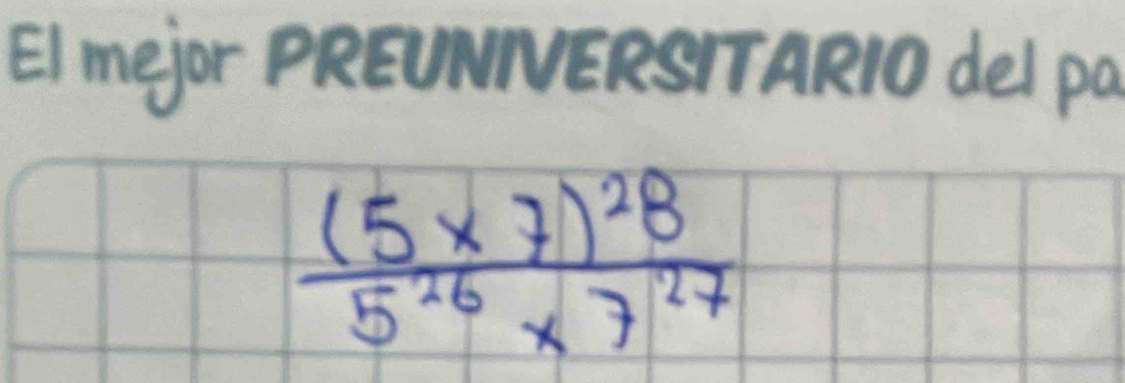 El mejor PREUNIVERSITARIO del pa
(5 x 7)^28
5^26 x 7^27